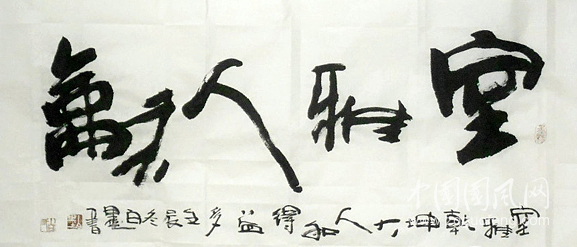 室雅人龢
室雅乾坤大人和得益多壬辰冬白墨書
中国国风网